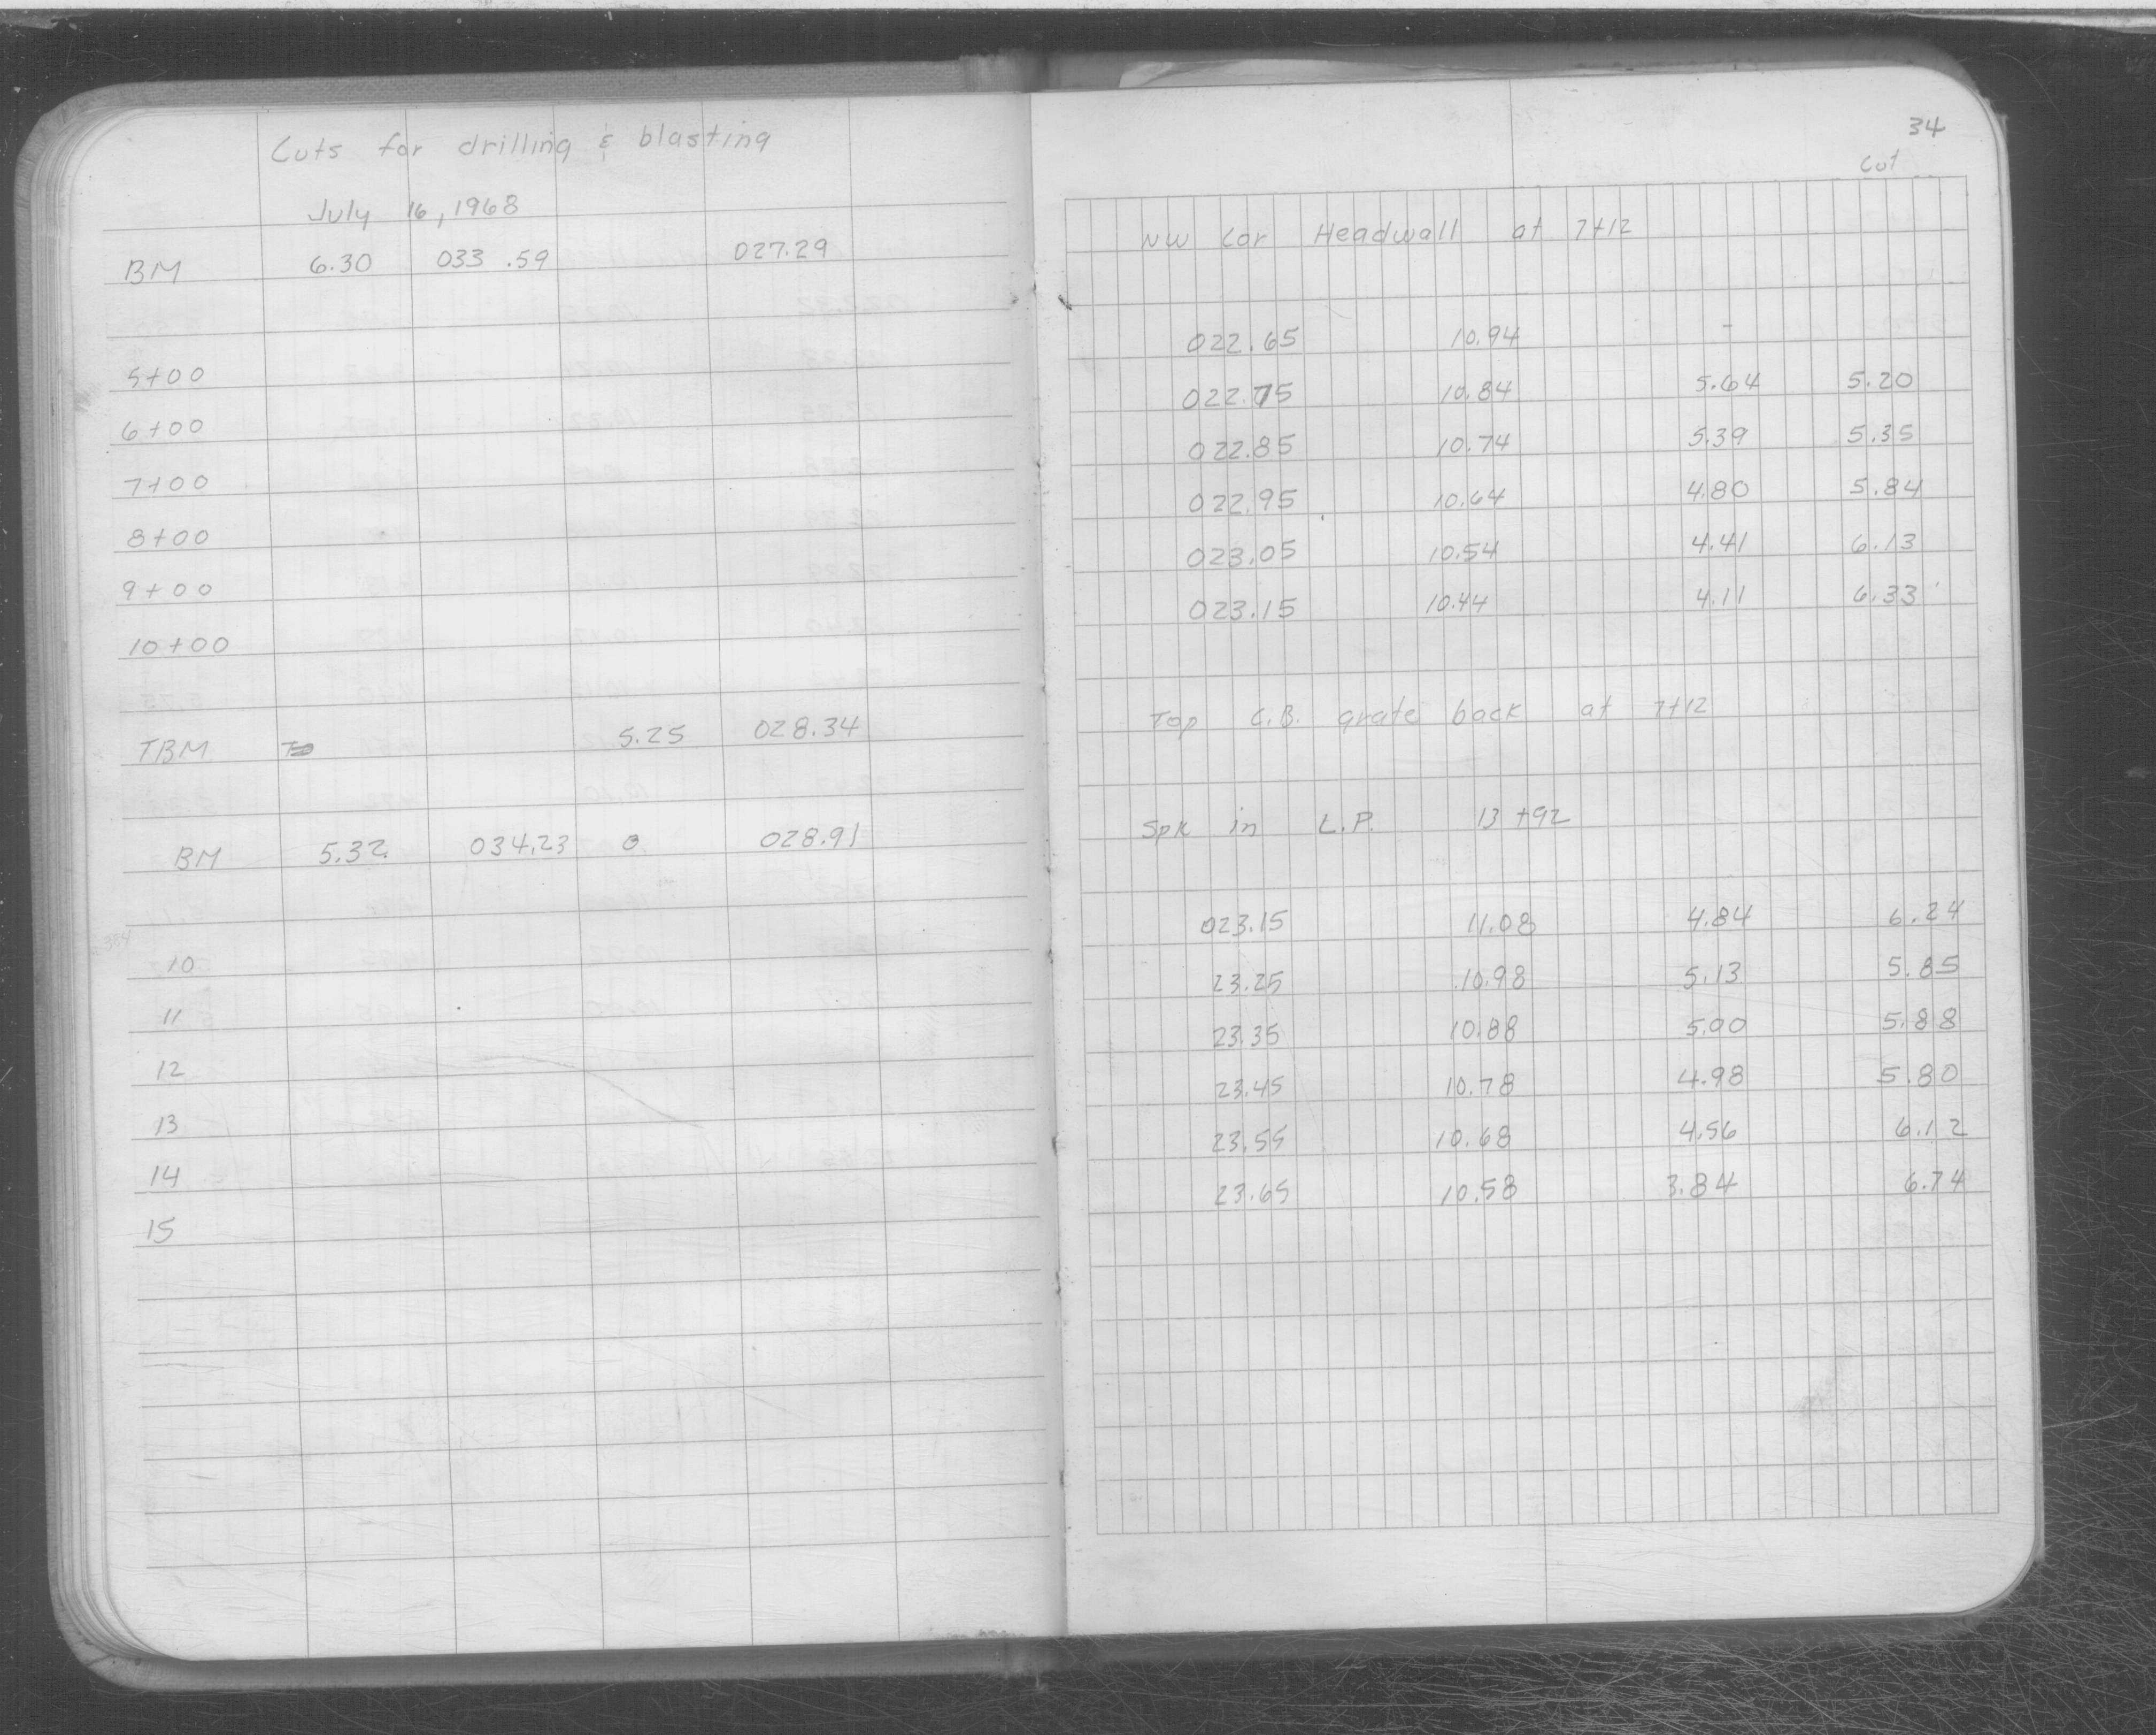 Cuts for drilling & blasting
July 16, 1968
BM 6.30 033.59 027.29
5+00
6+00
7+00
8+00
9+00
10+00
TBM 5.25 028.34
BM 5.32 034.23 0 028.91
10
11
12
13
14
15
34
Cut
NW Cor Headwall at 7+12
022.65 10.94 -
022.75 10.84 5.64 5.20
022.85 10.74 5.39 5.35
022.95 10.64 4.80 5.84
023.05 10.54 4.41 6.13
023.15 10.44 4.11 6.33
Top C.B. grate back at 7+12
Spk in L.P. 13+92
023.15 11.08 4.84 6.24
23.25 10.98 5.13 5.85
23.35 10.88 5.00 5.88
23.45 10.78 4.98 5.80
23.55 10.68 4.56 6.12
23.65 10.58 3.84 6.74